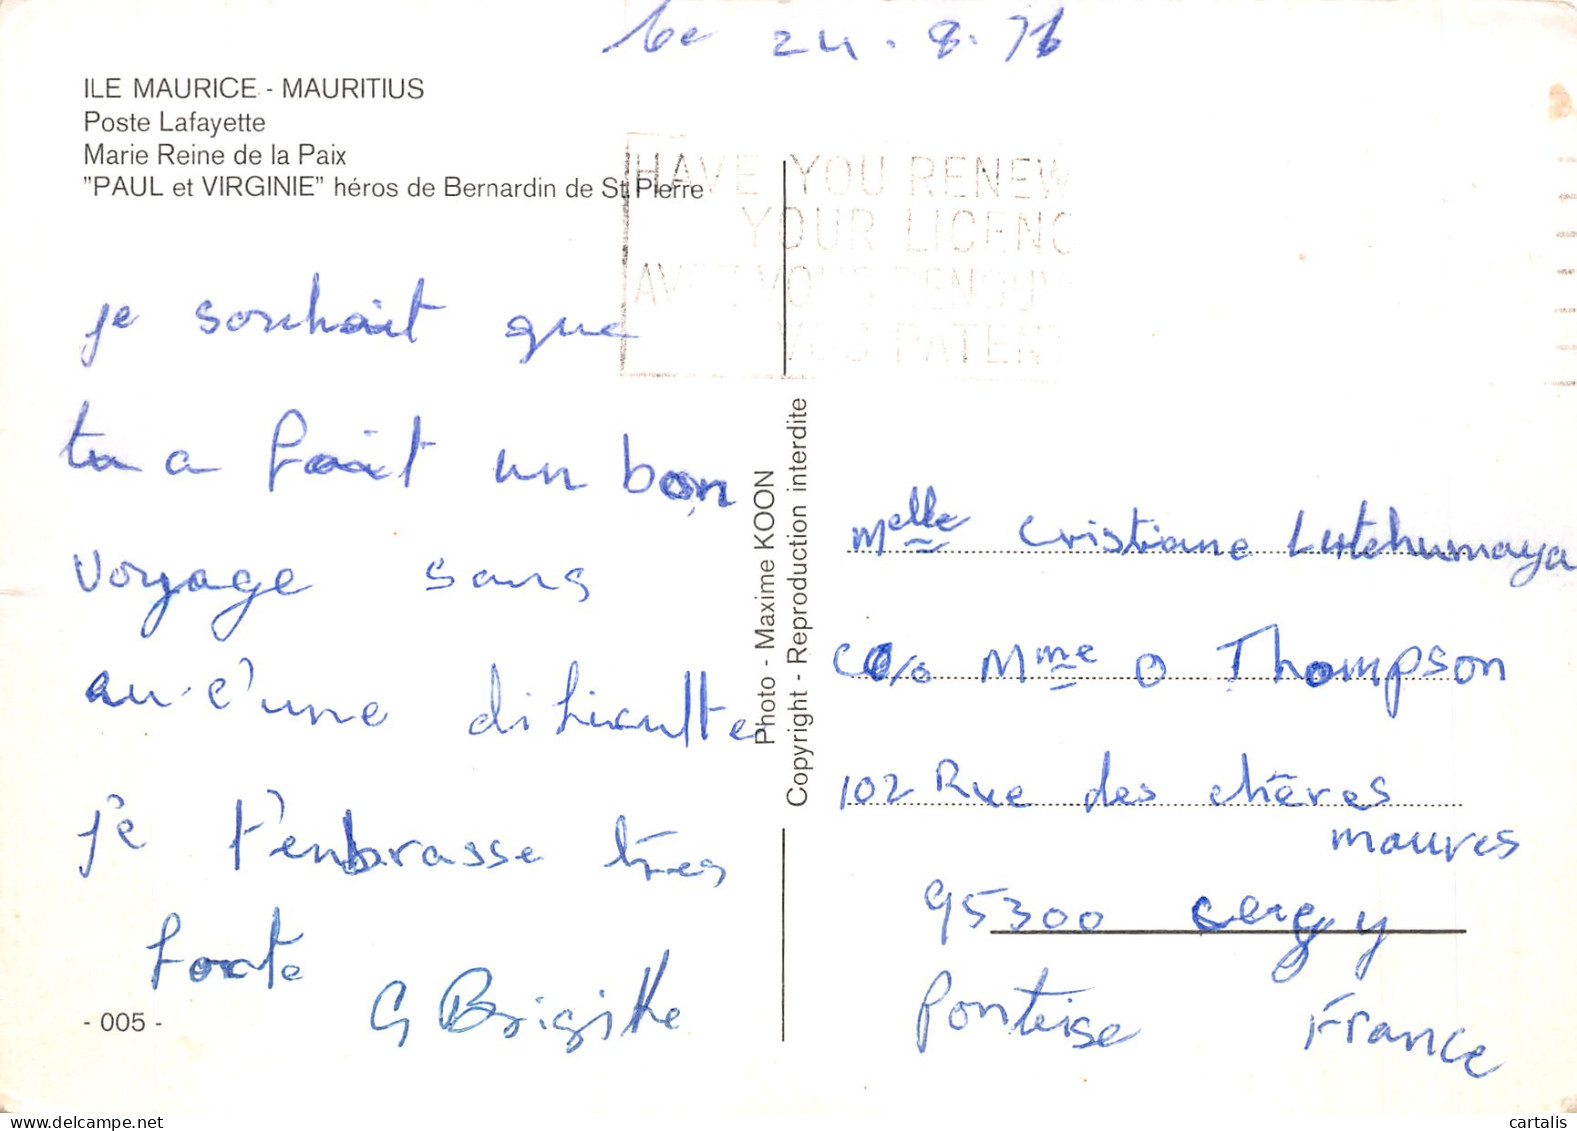 le 24.8.76
ILE MAURICE - MAURITIUS
Poste Lafayette
Marie Reine de la Paix
"PAUL et VIRGINIE" héros de Bernardin de St Pierre
HAVE YOU RENEW
YOUR LICENC
AVEZ VOUS RENOUV
VOS PATEN
je souhait que
tu a fait un bon
voyage sans
au c'une dificulte
je t'enbrasse très
forte
G Brigitte
- 005 -
Photo - Maxime KOON
Copyright - Reproduction interdite
Melle Cristiane Lutchumaya
C/o Mme O Thompson
102 Rue des chênes
maures
95300 cergy
Pontoise France
cartalis